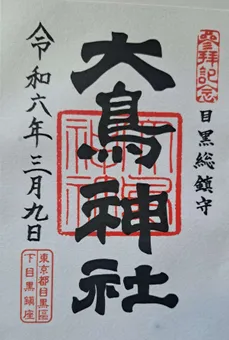 參拝記念
目黒総鎮守
大鳥神社
令和六年三月九日
東京都目黒區
下目黒鎮座